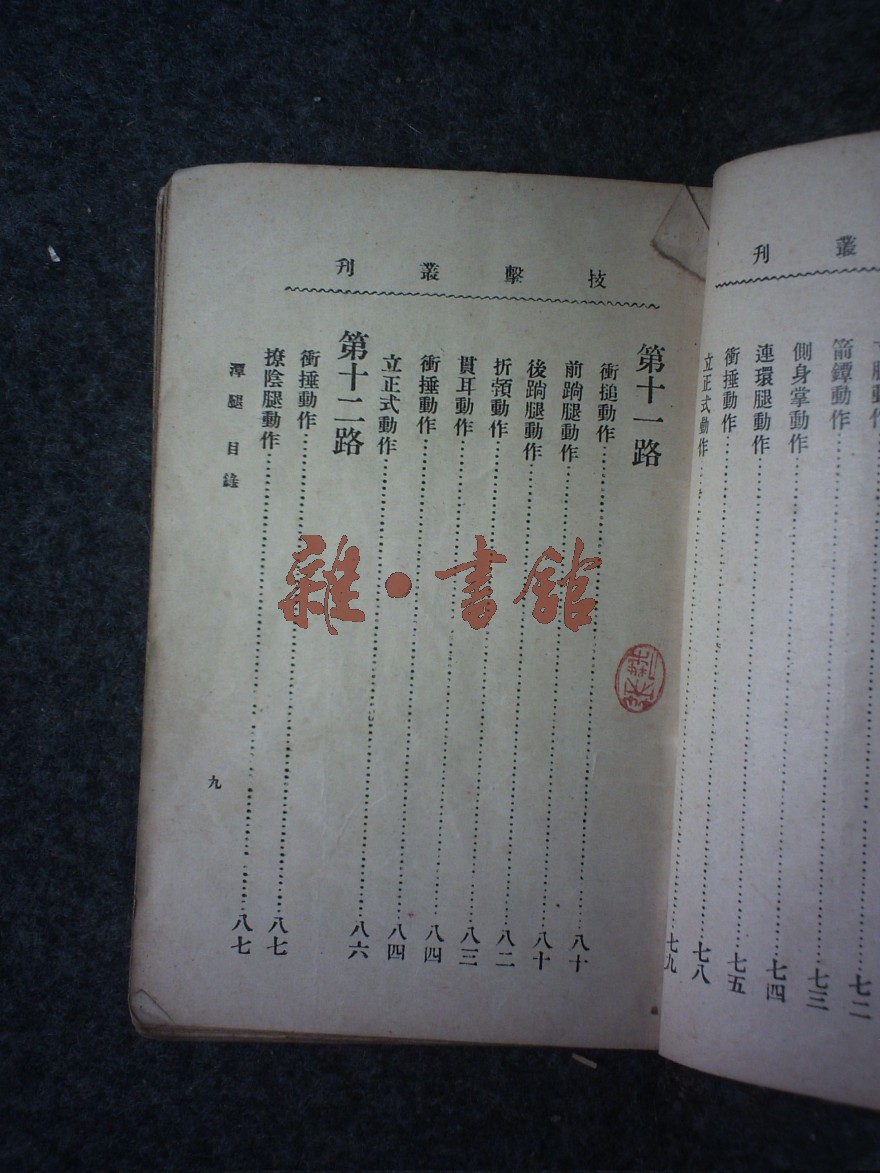 叢刊
動作
箭鐔動作……七三
側身掌動作……七四
連環腿動作……七五
衝捶動作……七八
立正式動作……七九
技擊叢刊
第十一路
衝搥動作……八十
前䠀腿動作……八十
後䠀腿動作……八二
折頷動作……八三
貫耳動作……八四
衝捶動作……八四
立正式動作……八六
第十二路
衝捶動作……八七
撩陰腿動作……八七
潭腿目錄
九
雜·書館